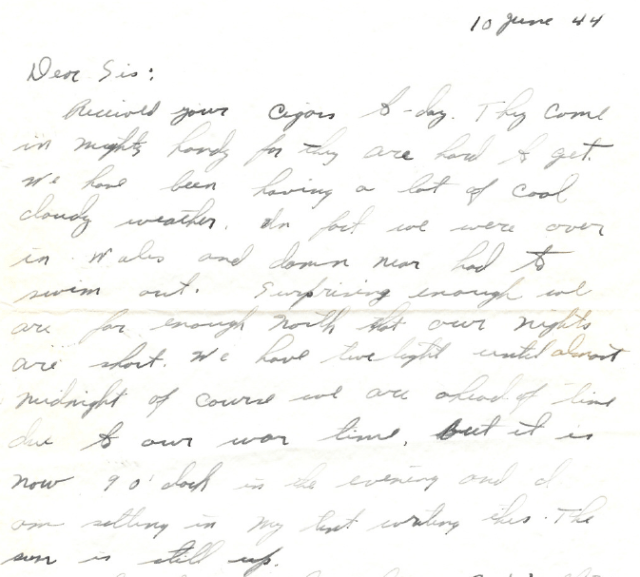 10 June 44
Dear Sis:
Received your cigars to-day. They come
in mighty handy for they are hard to get.
We have been having a lot of cool
cloudy weather. In fact we were over
in Wales and damn near had to
swim out. Surprising enough we
are far enough north that our nights
are short. We have twilight until almost
midnight of course we are ahead of time
due to our war time, but it is
now 9 o'clock in the evening and I
am setting in my tent writing this. The
sun is still up.